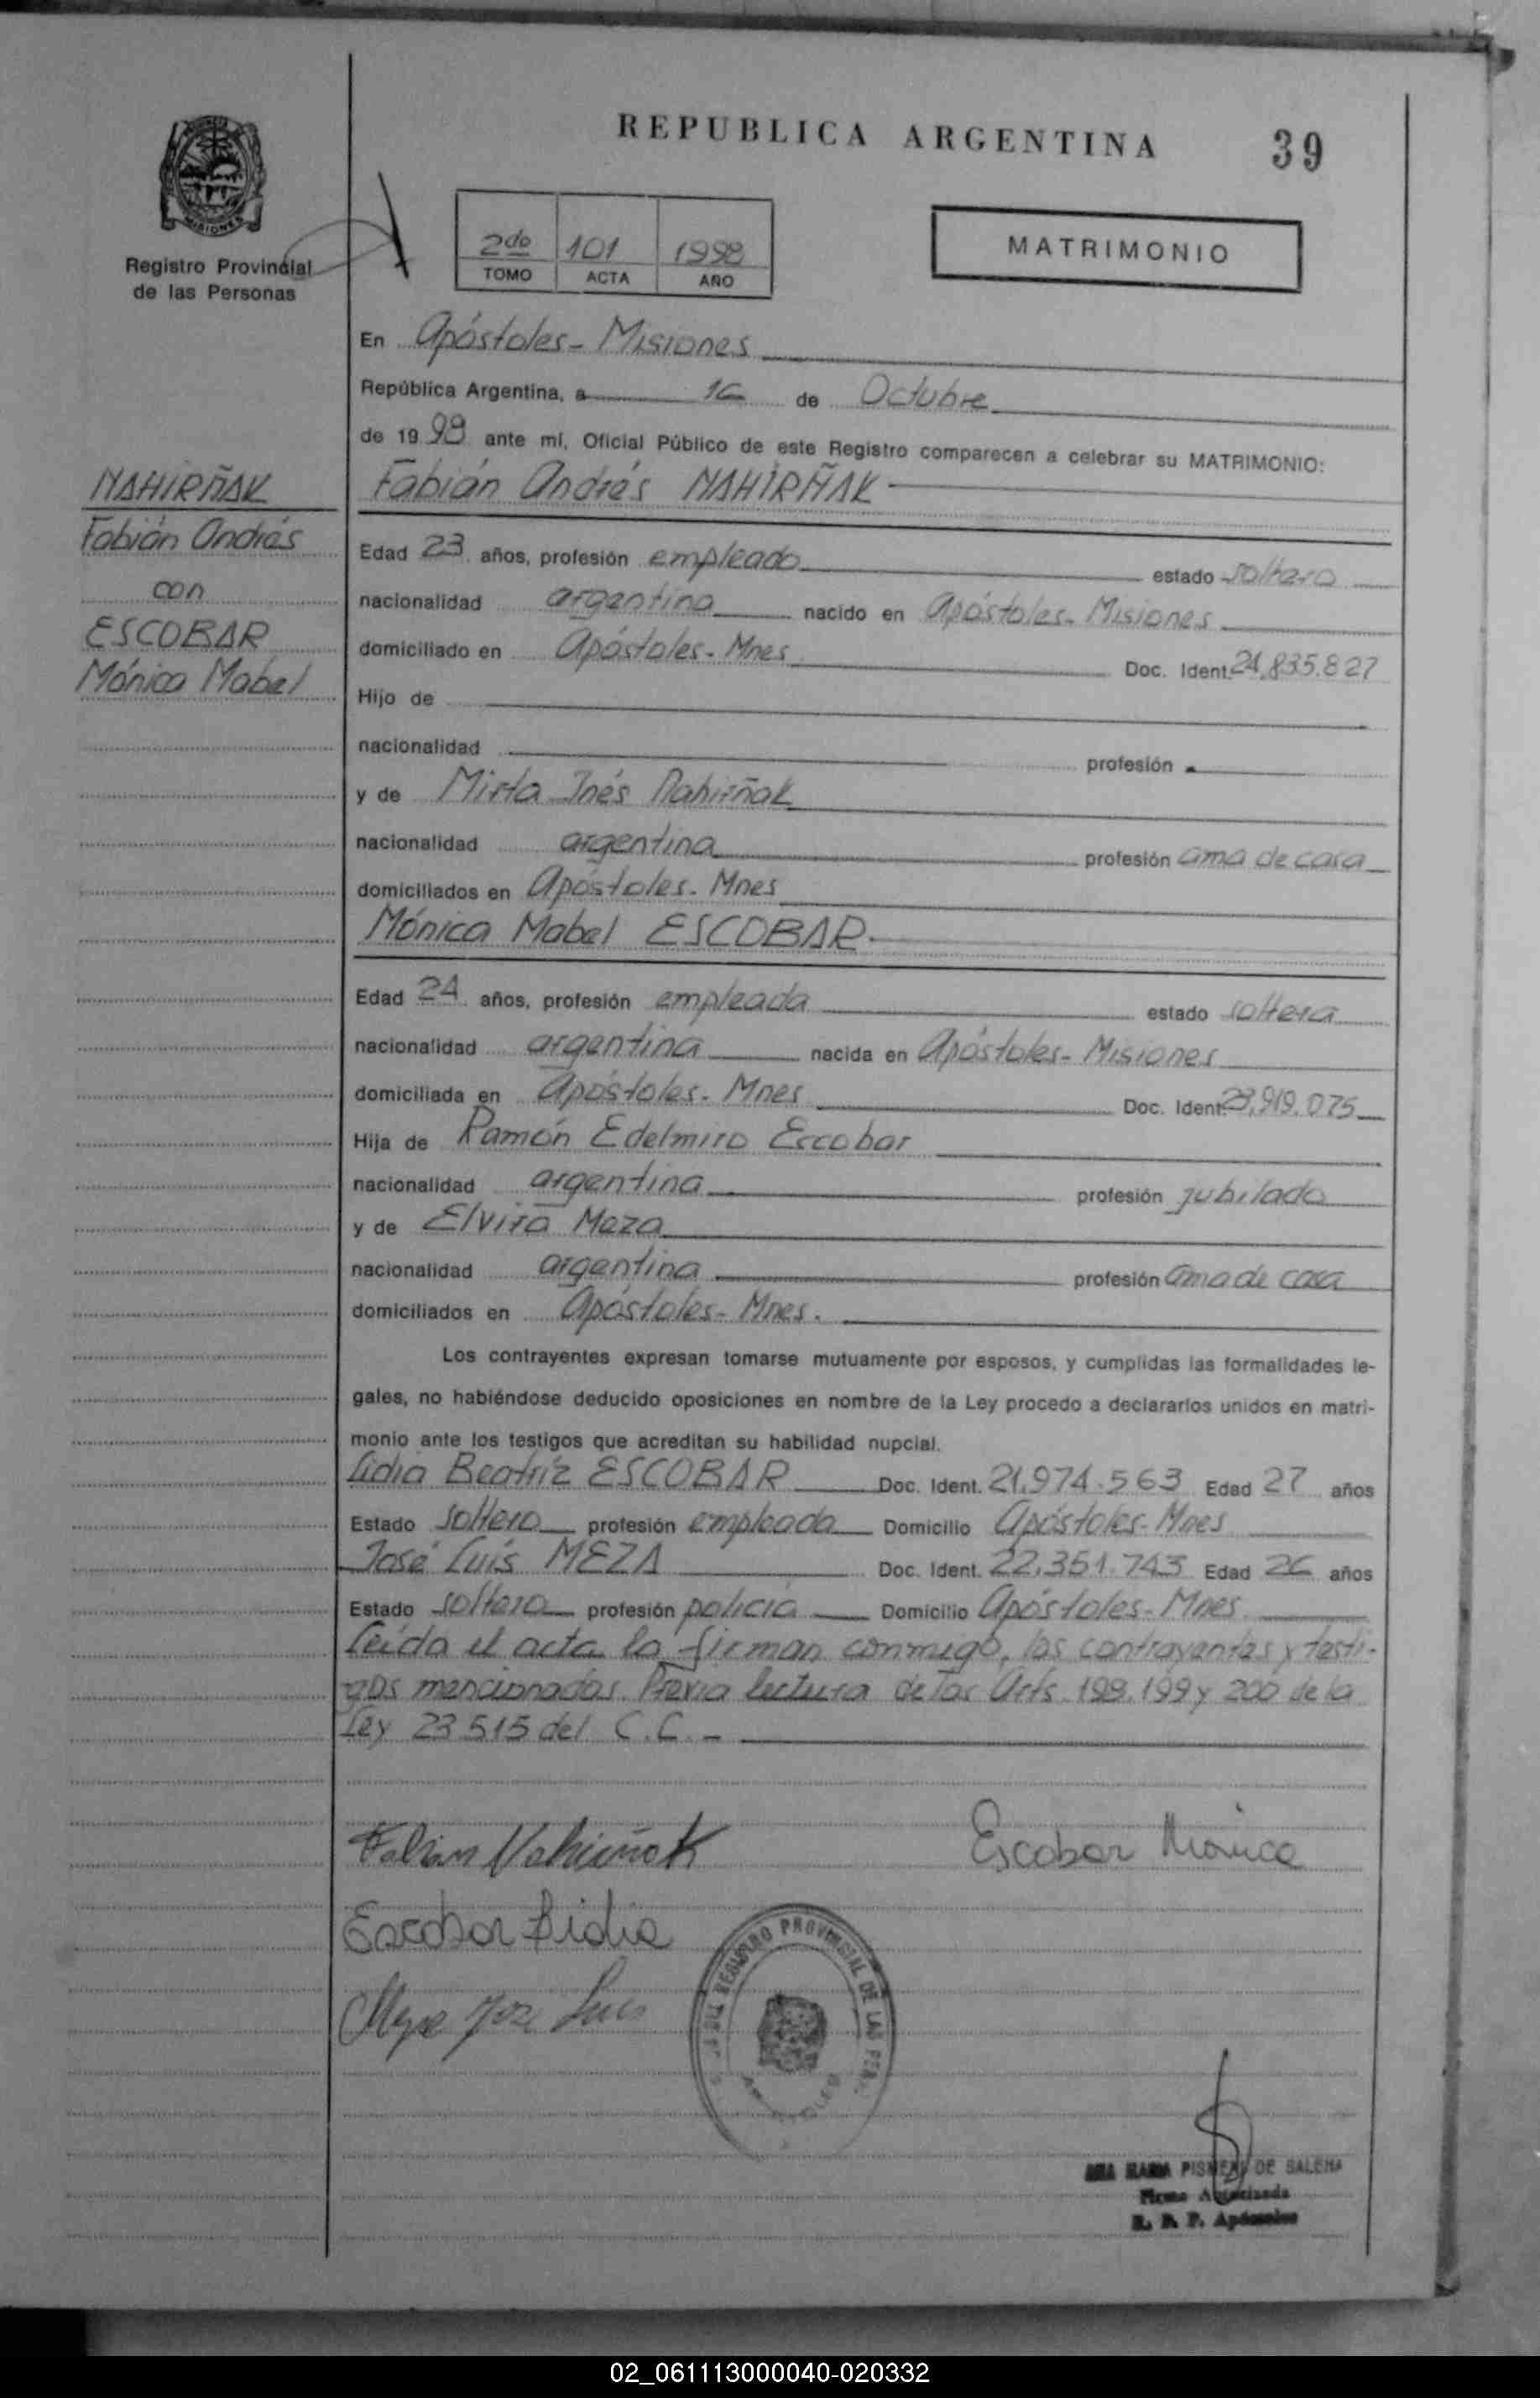 REPUBLICA ARGENTINA
39
MISIONES
Registro Provincial
de las Personas
2do 101 1998
TOMO ACTA AÑO
MATRIMONIO
En Apóstoles - Misiones
República Argentina, a 16 de Octubre
de 19 98 ante mí, Oficial Público de este Registro comparecen a celebrar su MATRIMONIO:
NAHIRÑAK
Fabián Andrés
con
ESCOBAR
Mónica Mabel
Fabián Andrés NAHIRÑAK
Edad 23 años, profesión empleado estado soltero
nacionalidad argentina nacido en Apóstoles - Misiones
domiciliado en Apóstoles - Mnes Doc. Ident. 24.835.827
Hijo de
nacionalidad profesión
y de Mirta Inés Nahirñak
nacionalidad argentina profesión ama de casa
domiciliados en Apóstoles - Mnes
Mónica Mabel ESCOBAR
Edad 24 años, profesión empleada estado soltera
nacionalidad argentina nacida en Apóstoles - Misiones
domiciliada en Apóstoles - Mnes Doc. Ident. 23.919.075
Hija de Ramón Edelmiro Escobar
nacionalidad argentina profesión jubilado
y de Elvira Meza
nacionalidad argentina profesión ama de casa
domiciliados en Apóstoles - Mnes.
Los contrayentes expresan tomarse mutuamente por esposos, y cumplidas las formalidades le-
gales, no habiéndose deducido oposiciones en nombre de la Ley procedo a declararlos unidos en matri-
monio ante los testigos que acreditan su habilidad nupcial.
Lidia Beatríz ESCOBAR Doc. Ident. 21.974.563 Edad 27 años
Estado soltera profesión empleada Domicilio Apóstoles - Mnes
José Luis MEZA Doc. Ident. 22.351.743 Edad 26 años
Estado soltero profesión policía Domicilio Apóstoles - Mnes
Leída el acta la firman conmigo, los contrayentes y testi-
gos mencionados. Previa lectura de los Arts. 198.199 y 200 de la
Ley 23.515 del C.C. -
Fabian Nahirñak
Escobar Mónica
Escobar Lidia
Meza Jose Luis
REGISTRO PROVINCIAL DE LAS PER
ANA MARIA DE SALEMA
Firma Autorizada
R. P. P. Apóstoles
02_061113000040-020332